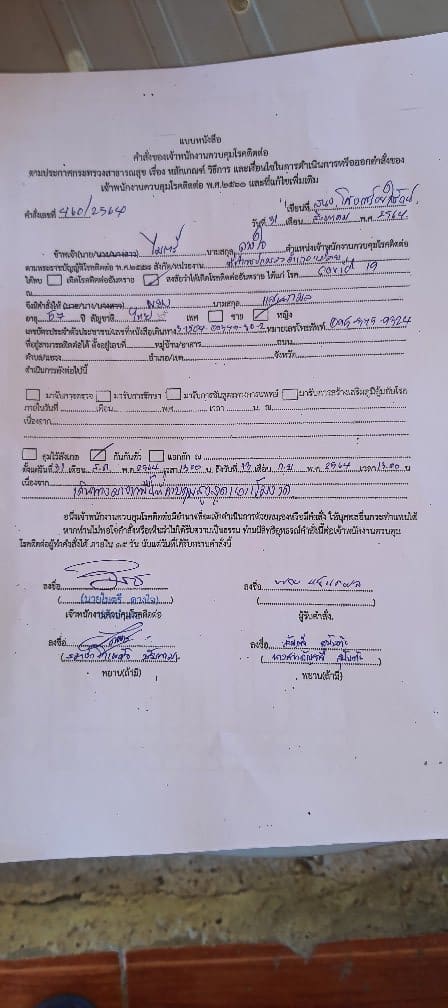 แบบหนังสือ
คำสั่งของเจ้าพนักงานควบคุมโรคติดต่อ
ตามประกาศกระทรวงสาธารณสุข เรื่อง หลักเกณฑ์ วิธีการ และเงื่อนไขในการดำเนินการหรือออกคำสั่งของ
เจ้าพนักงานควบคุมโรคติดต่อ พ.ศ.๒๕๖๐ และที่แก้ไขเพิ่มเติม
คำสั่งเลขที่ 460/2564
เขียนที่
วันที่ 31 เดือน สิงหาคม พ.ศ. 2564
ข้าพเจ้า(นาย/นาง/นางสาว) ไมตรี นามสกุล ดวงใจ ตำแหน่งเจ้าพนักงานควบคุมโรคติดต่อ
ตามพระราชบัญญัติโรคติดต่อ พ.ศ.๒๕๕๘ สังกัด/หน่วยงาน
ได้พบ เกิดโรคติดต่ออันตราย สงสัยว่าได้เกิดโรคติดต่ออันตราย ได้แก่ โรค covid 19
ณ
จึงมีคำสั่งให้ (นาย/นาง/นางสาว) นามสกุล
อายุ 67 ปี สัญชาติ ไทย เพศ ชาย หญิง
เลขบัตรประจำตัวประชาชน/เลขที่หนังสือเดินทาง หมายเลขโทรศัพท์
ที่อยู่สามารถติดต่อได้ ตั้งอยู่เลขที่ หมู่บ้าน/อาคาร ถนน
ตำบล/แขวง อำเภอ/เขต จังหวัด
ดำเนินการดังต่อไปนี้
มารับการตรวจ มารับการรักษา มารับการชันสูตรทางการแพทย์ มารับการสร้างเสริมภูมิคุ้มกันโรค
ภายในวันที่ เดือน พ.ศ. เวลา น. ณ
เนื่องจาก
คุมไว้สังเกต กักกันตัว แยกกัก ณ
ตั้งแต่วันที่ 31 เดือน ส.ค. พ.ศ. 2564 เวลา 13.00 น. ถึงวันที่ 13 เดือน ก.ย. พ.ศ. 2564 เวลา 13.00 น
เนื่องจาก เดินทางมาจากพื้นที่ควบคุมสูงสุด
อนึ่งเจ้าพนักงานควบคุมโรคติดต่อมีอำนาจที่จะเข้าดำเนินการด้วยตนเองหรือมีคำสั่ง ให้บุคคลอื่นกระทำแทนได้
หากท่านไม่พอใจคำสั่งหรือเห็นว่าไม่ได้รับความเป็นธรรม ท่านมีสิทธิอุทธรณ์คำสั่งนี้ต่อเจ้าพนักงานควบคุม
โรคติดต่อผู้ทำคำสั่งได้ ภายใน ๑๕ วัน นับแต่วันที่ได้รับทราบคำสั่งนี้
ลงชื่อ
(นายไมตรี ดวงใจ)
เจ้าพนักงานควบคุมโรคติดต่อ
ลงชื่อ
ผู้รับคำสั่ง
ลงชื่อ
พยาน(ถ้ามี)
ลงชื่อ
พยาน(ถ้ามี)